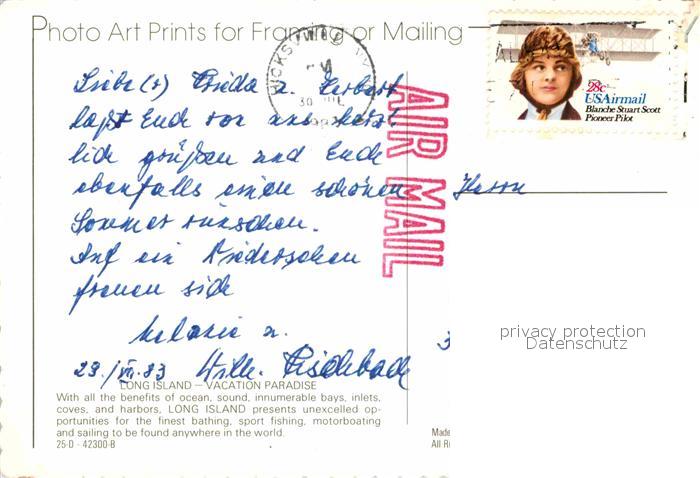 Photo Art Prints for Framing or Mailing
HICKSVILLE NY
30 JUL
28c
USAirmail
Blanche Stuart Scott
Pioneer Pilot
AIR MAIL
Liebe(r) Frieda u. Herbert
laßt Euch von uns herz-
lich grüßen und Euch
ebenfalls einen schönen
Sommer wünschen.
Auf ein Wiedersehen
freuen sich
Melanie u.
29./VII.83 Willi Fischbach
Herrn
privacy protection
Datenschutz
LONG ISLAND — VACATION PARADISE
With all the benefits of ocean, sound, innumerable bays, inlets,
coves, and harbors, LONG ISLAND presents unexcelled op-
portunities for the finest bathing, sport fishing, motorboating
and sailing to be found anywhere in the world.
25-D - 42300-B
Made
All Ri